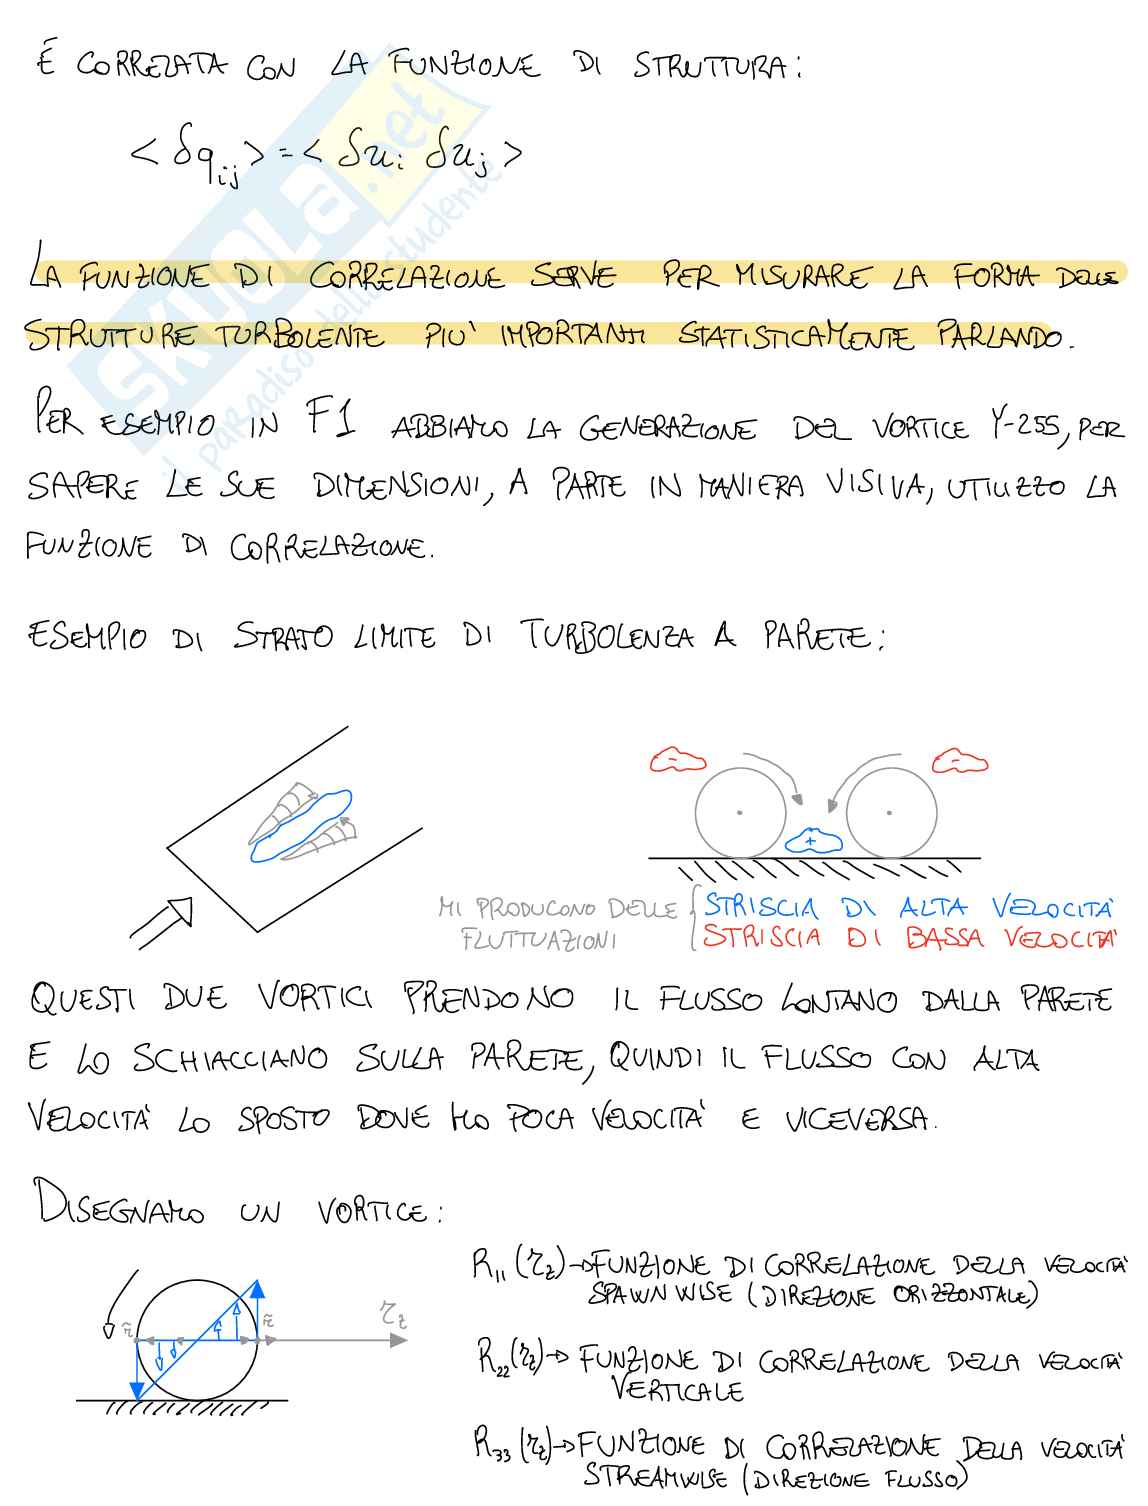 È CORRELATA CON LA FUNZIONE DI STRUTTURA:
< δq_ij > = < δu_i δu_j >
LA FUNZIONE DI CORRELAZIONE SERVE PER MISURARE LA FORMA DELLE
STRUTTURE TURBOLENTE PIU' IMPORTANTI STATISTICAMENTE PARLANDO.
PER ESEMPIO IN F1 ABBIAMO LA GENERAZIONE DEL VORTICE Y-255, PER
SAPERE LE SUE DIMENSIONI, A PARTE IN MANIERA VISIVA, UTILIZZO LA
FUNZIONE DI CORRELAZIONE.
ESEMPIO DI STRATO LIMITE DI TURBOLENZA A PARETE:
- -
+
MI PRODUCONO DELLE { STRISCIA DI ALTA VELOCITA'
FLUTTUAZIONI STRISCIA DI BASSA VELOCITA'
QUESTI DUE VORTICI PRENDONO IL FLUSSO LONTANO DALLA PARETE
E LO SCHIACCIANO SULLA PARETE, QUINDI IL FLUSSO CON ALTA
VELOCITA' LO SPOSTO DOVE HO POCA VELOCITA' E VICEVERSA.
DISEGNAMO UN VORTICE:
r̃ r̃ r_z
R_11 (r_z) → FUNZIONE DI CORRELAZIONE DELLA VELOCITA'
SPAWNWISE (DIREZIONE ORIZZONTALE)
R_22 (r_z) → FUNZIONE DI CORRELAZIONE DELLA VELOCITA'
VERTICALE
R_33 (r_z) → FUNZIONE DI CORRELAZIONE DELLA VELOCITA'
STREAMWISE (DIREZIONE FLUSSO)
SKUOLA.net
il paradiso dello studente